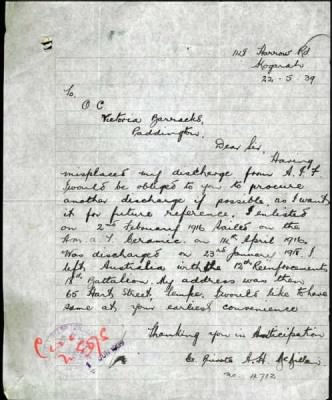 Harrow Rd
Kogarah
22-5-39
To,
O C
Victoria Barracks,
Paddington.
Dear Sir,
Having
misplaced my discharge from A.I.F
I would be obliged to you to procure
another discharge if possible, as I want
it for future reference. I enlisted
on 2nd February 1916 Sailed on the
Ceramic. on 14th April 1916.
Was discharged on 23rd January 1918. I
left Australia with the 12th Reinforcements
Battalion. My address was then
65 Hart Street, Tempe. I would like to have
same at your earliest convenience
Thanking you in Anticipation
Ex. Private A. H.
No.